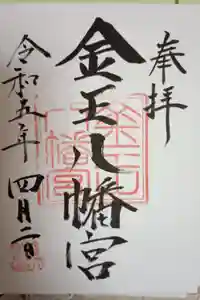 奉拝
金王八幡宮
令和五年
四月二日